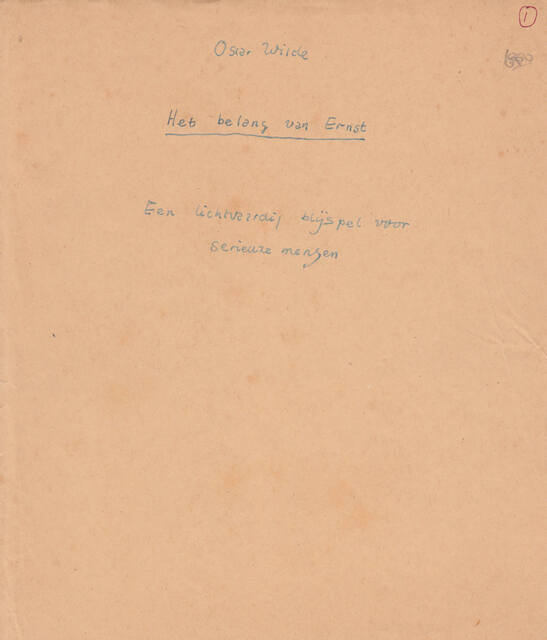 1
Oscar Wilde
Het belang van Ernst
Een lichtvaardig blijspel voor
serieuze mensen